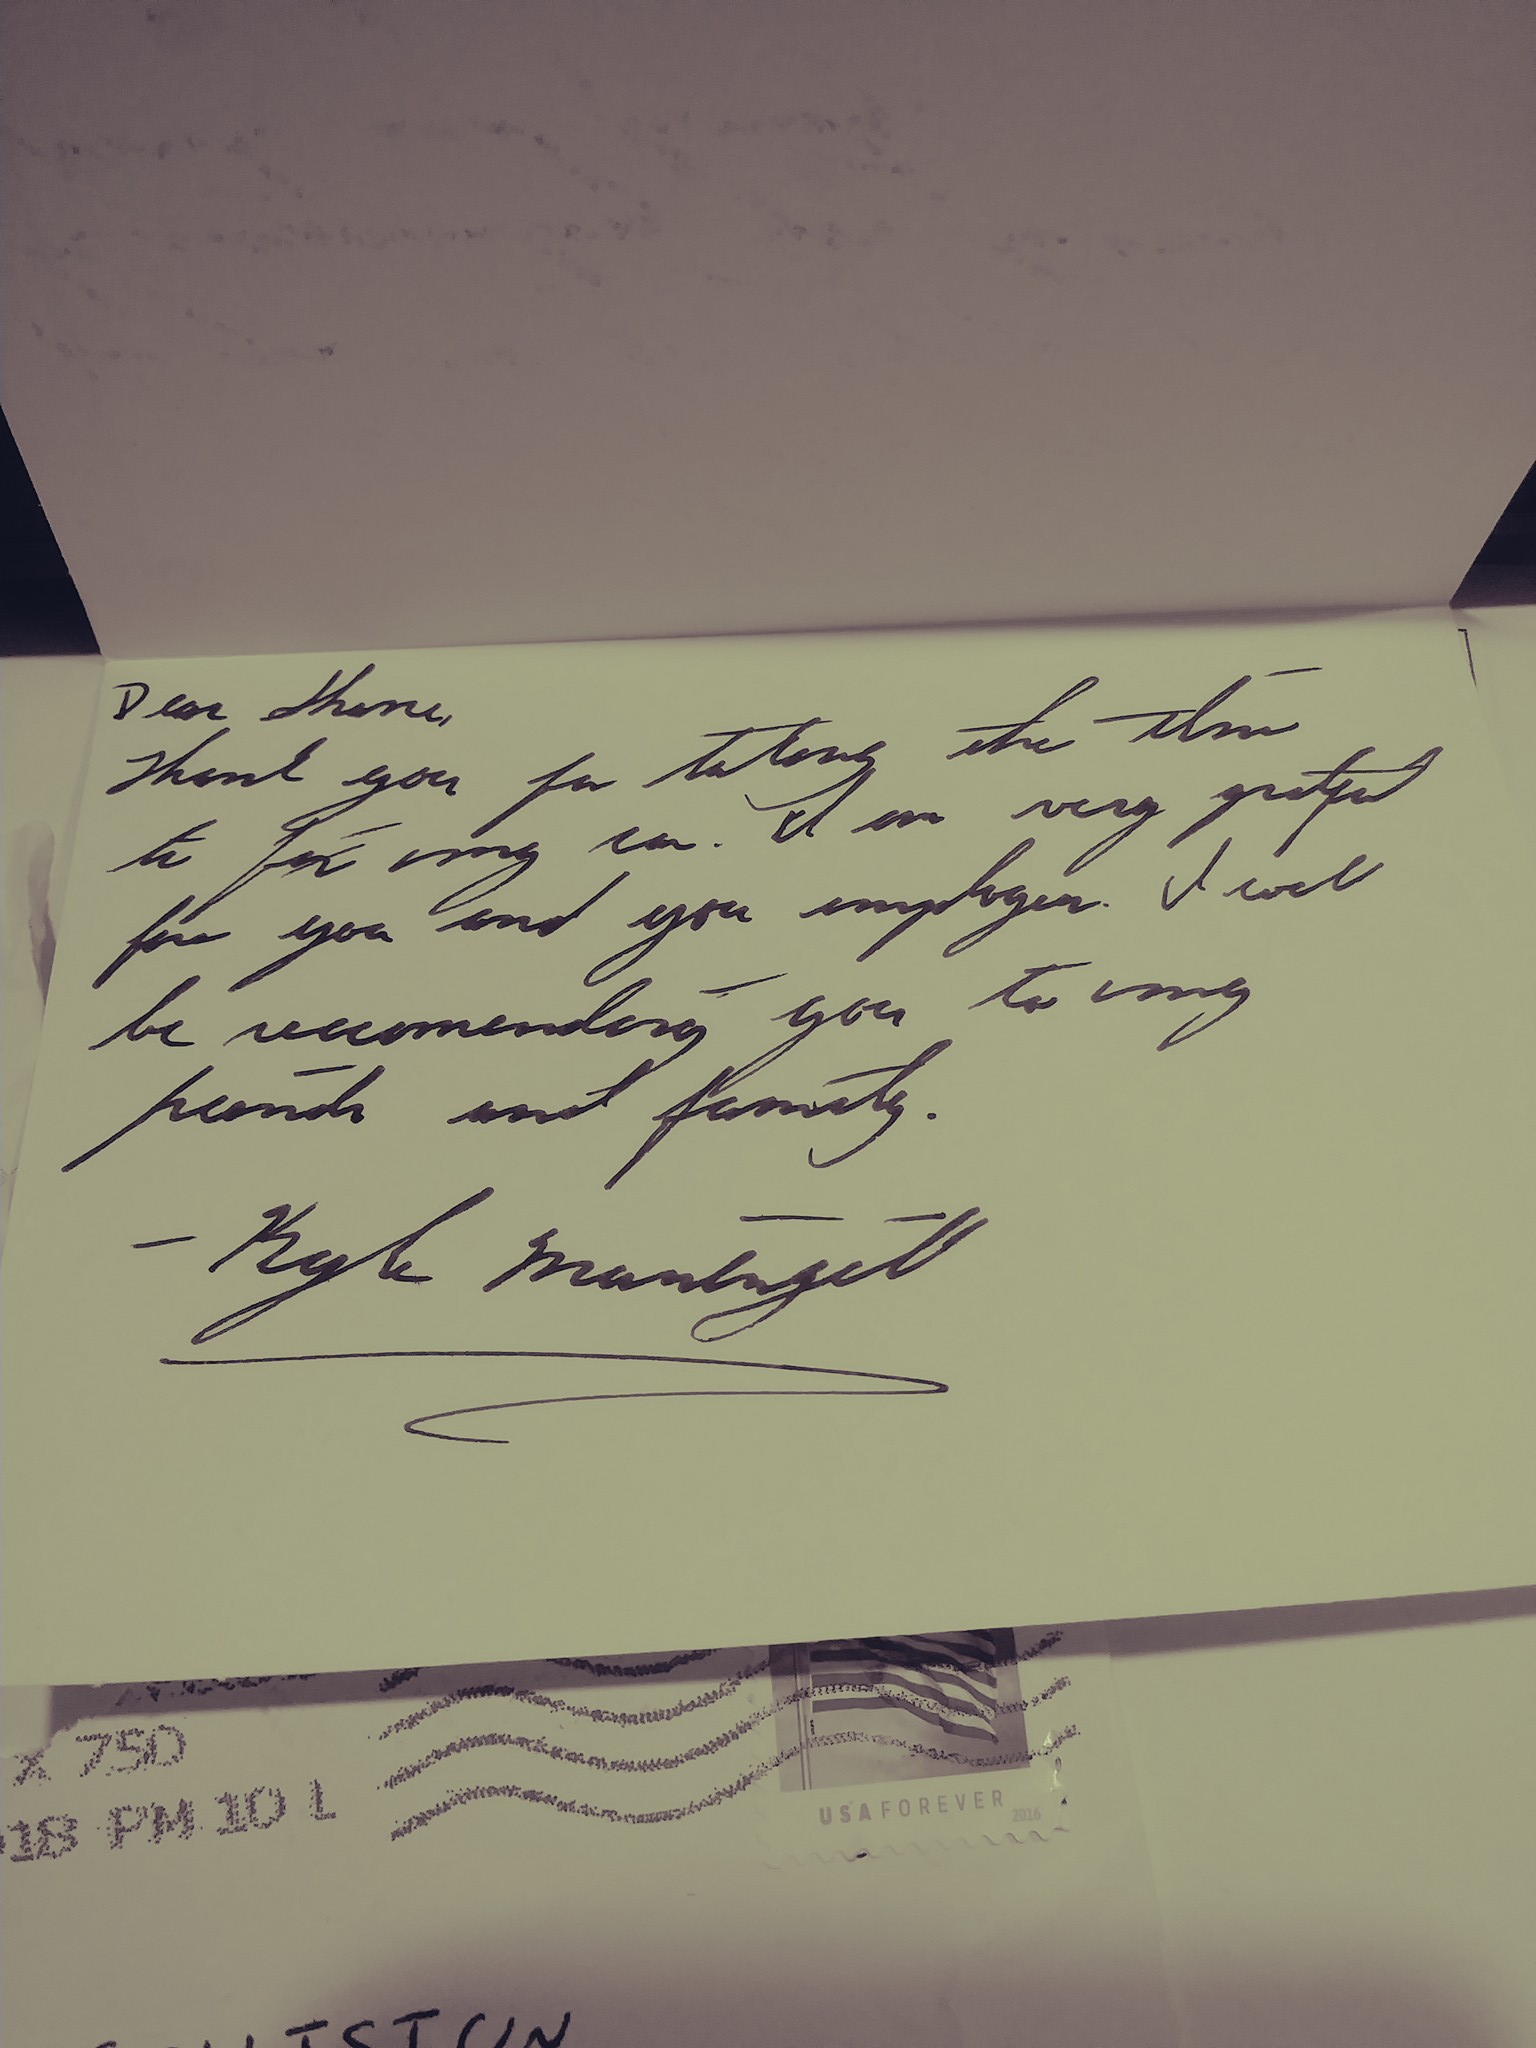 Dear Shane,
Thank you for taking the time
to fix my car. I am very grateful
for you and your employer. I will
be reccomending you to my
friends and family.
- Kyle
X 750
18 PM 10 L
USA FOREVER
2016